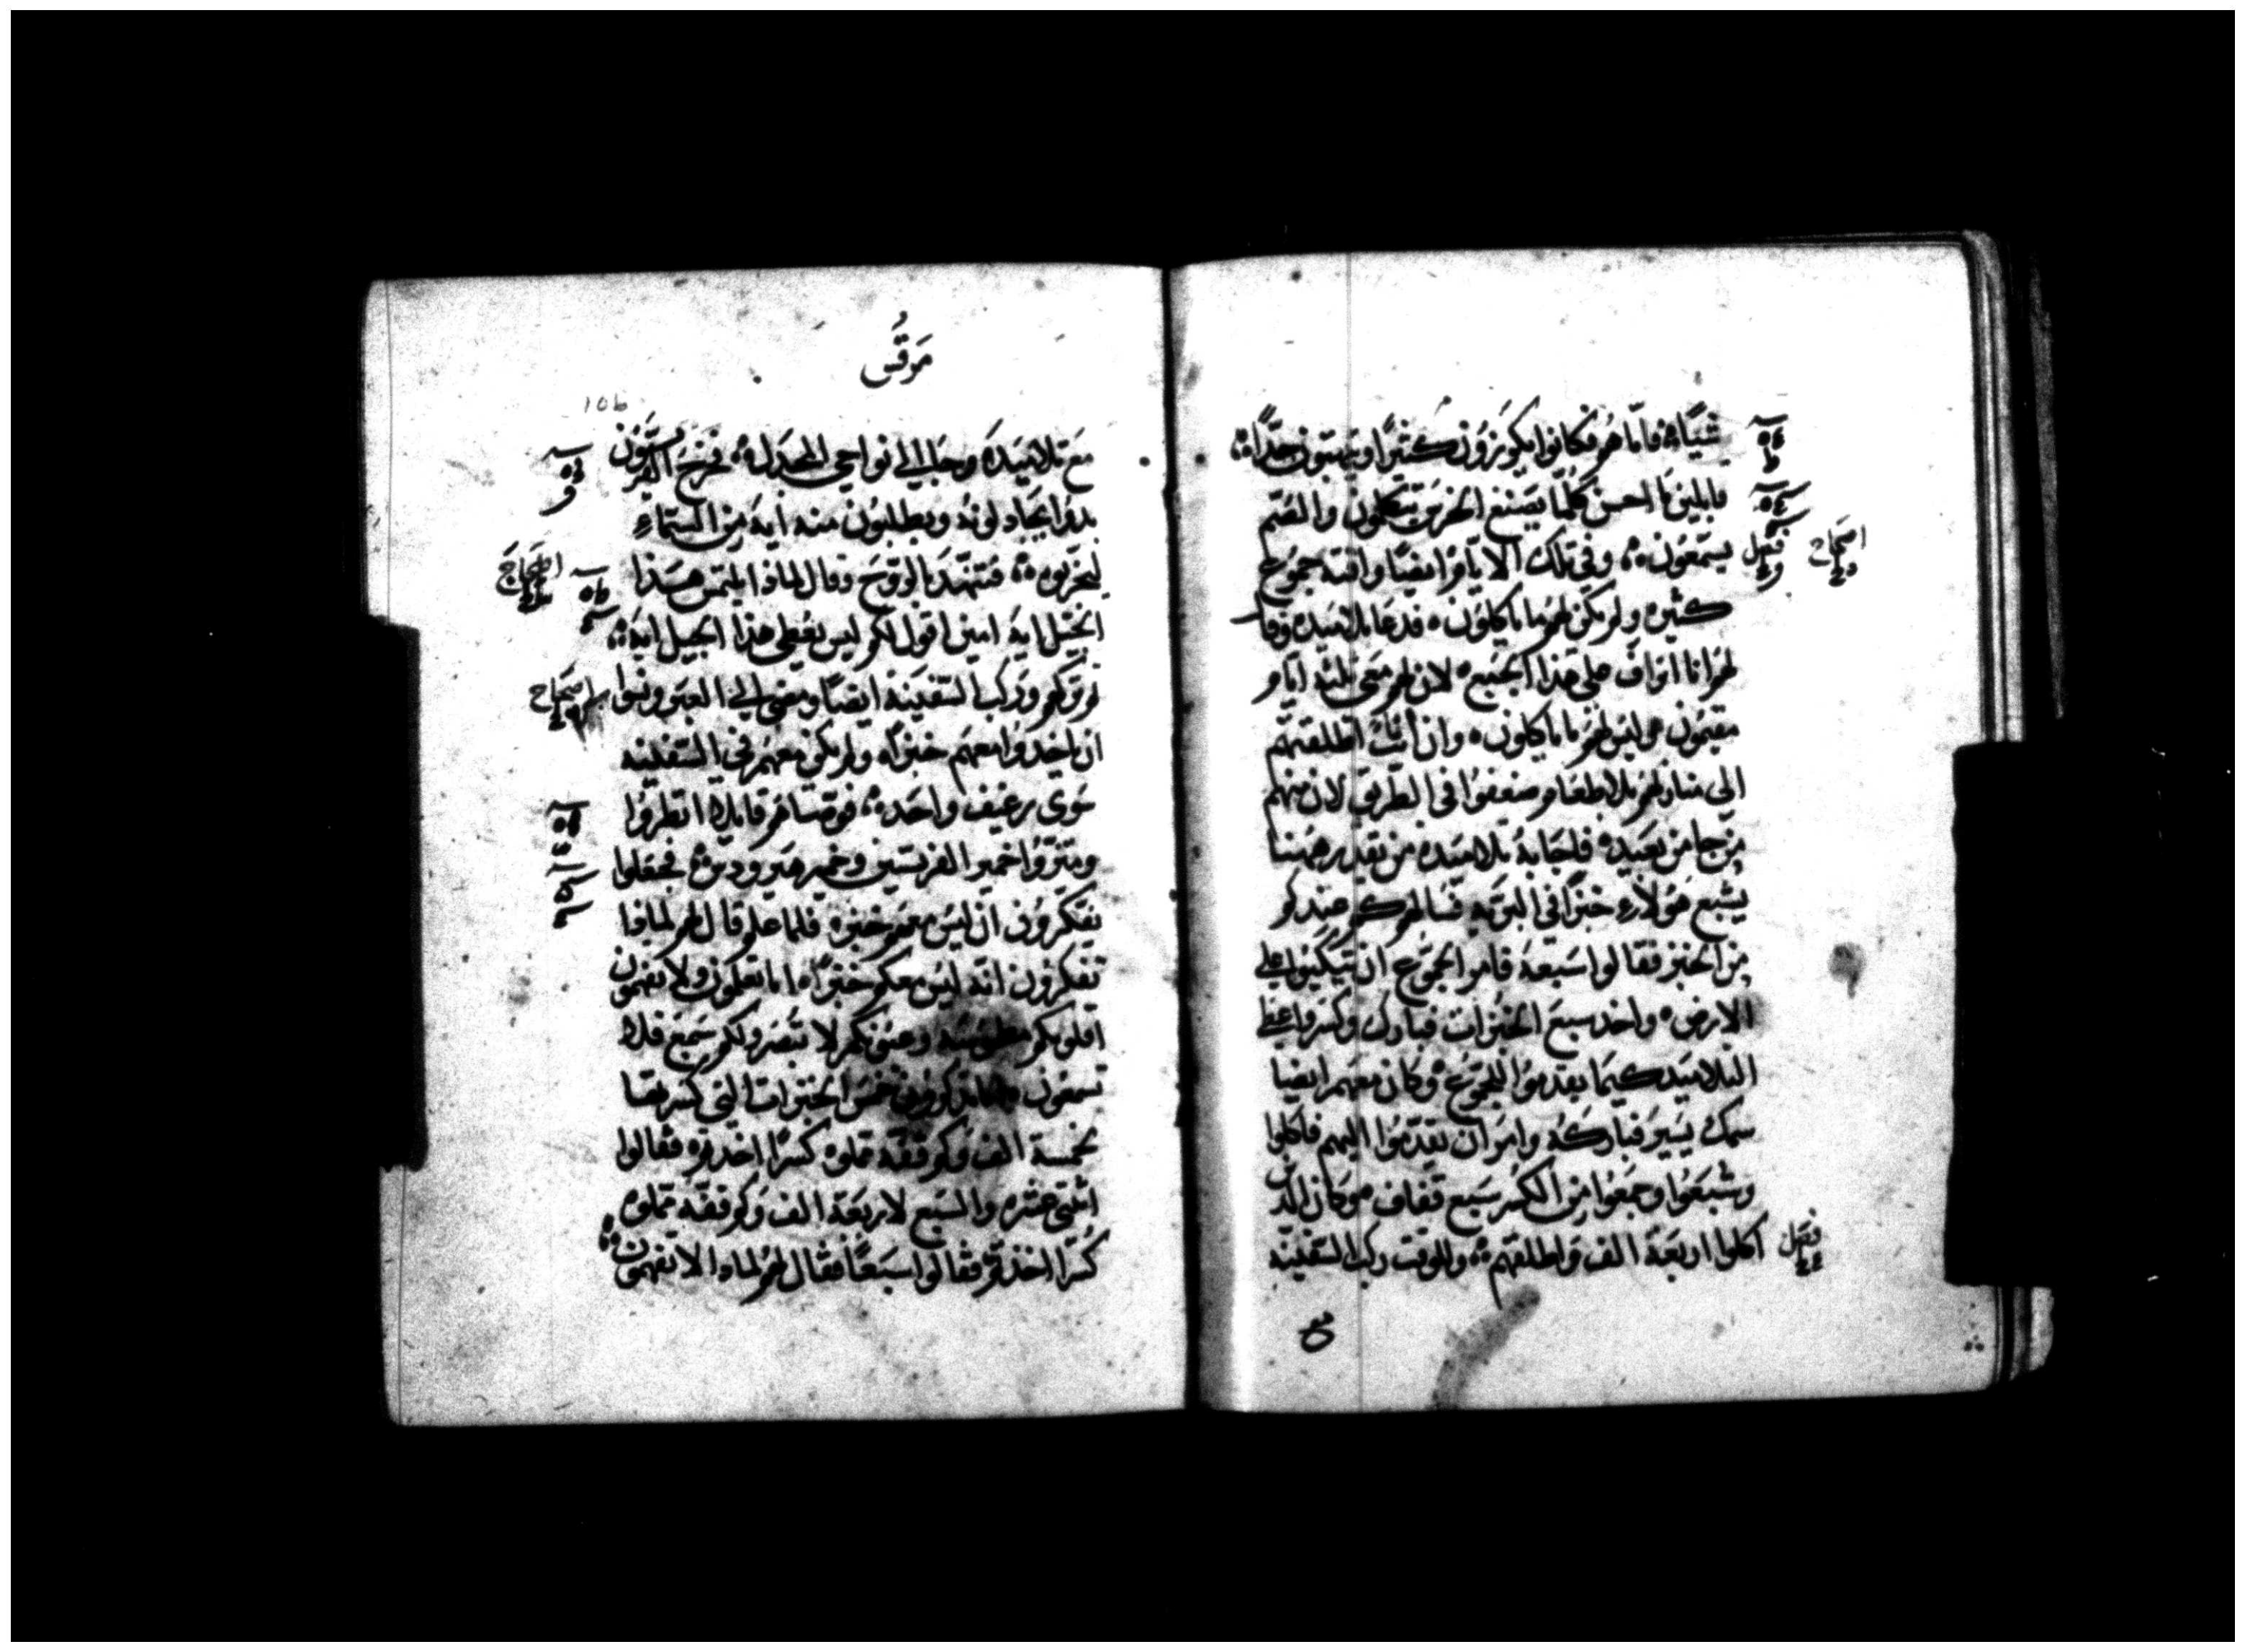 شيًا ۞ فاما هم فكانوا يكرزون كثيرًا ويبهتون جدًا ۞
قايلين ما احسن كلما يصنع الخرس يتكلمون والصم
يسمعون ۞ وفي تلك الايام ايضًا وافته جموع
فصل
اصحاح
كثيره ولم يكن لهم ما ياكلون ۞ فدعا تلاميده وقا
لهم انا اتراف على هذا الجمع ۞ لان لهم معي ثلثه ايام
مقيمون وليس لهم ما ياكلون ۞ وان انا اطلقتهم
الى منازلهم بلا طعام ضعفوا في الطريق لان منهم
من جا من بعيد ۞ فاجابه تلاميده من يقدر ههنا
يشبع هولاء خبزًا في البريه فسالهم كم عندكم
من الخبز فقالوا سبعة فامر الجموع ان يتكيوا على
الارض ۞ واخد سبع الخبزات فبارك وكسر واعطى
التلاميد كيما يقدموا للجموع ۞ وكان معهم ايضا
سمك يسير فباركه وامر ان يقدموا اليهم فاكلوا
وشبعوا وجمعوا من الكسر سبع قفاف ۞ وكان الدين
اكلوا اربعة الف واطلقهم ۞ وللوقت ركب السفينه
فصل
مع
مرقس
106
مع تلاميده وجا الى نواحي المجدل ۞ فخرج الفريسيون
بدوا يجادلونه ويطلبون منه اية من السماء
ليجربوه ۞ فتنهد بالروح وقال لماذا يلتمس هذا
اصحاح
الجيل ايه امين اقول لكم ليس يعطى هذا الجيل ايه ۞
ثم تركهم وركب السفينه ايضًا ومضى الى العبر ونسوا
اصحاح
ان ياخدوا معهم خبزًا ۞ ولم يكن معهم في السفينه
سوى رغيف واحد ۞ فوصاهم قايلا انظروا
وتحرزوا خمير الفريسين وخمير هيرودس ۞ فجعلوا
يفكرون ان ليس معهم خبز ۞ فلما علم قال لهم لماذا
تفكرون انه ليس معكم خبزًا ۞ اما تعلمون ولا تفهمون
اقلوبكم مطموسه وعيونكم لا تبصر ولكم سمع فلا
تسمعون ۞ اما تذكرون خمس الخبزات التي كسرتها
لخمسة الف وكم قفة مملوه كسرًا اخدتم ۞ فقالوا
اثنتي عشره والسبع لاربعة الف وكم قفة مملوه
كسرًا اخذتم فقالوا سبعًا فقال لهم لماذا لا تفهمون ۞